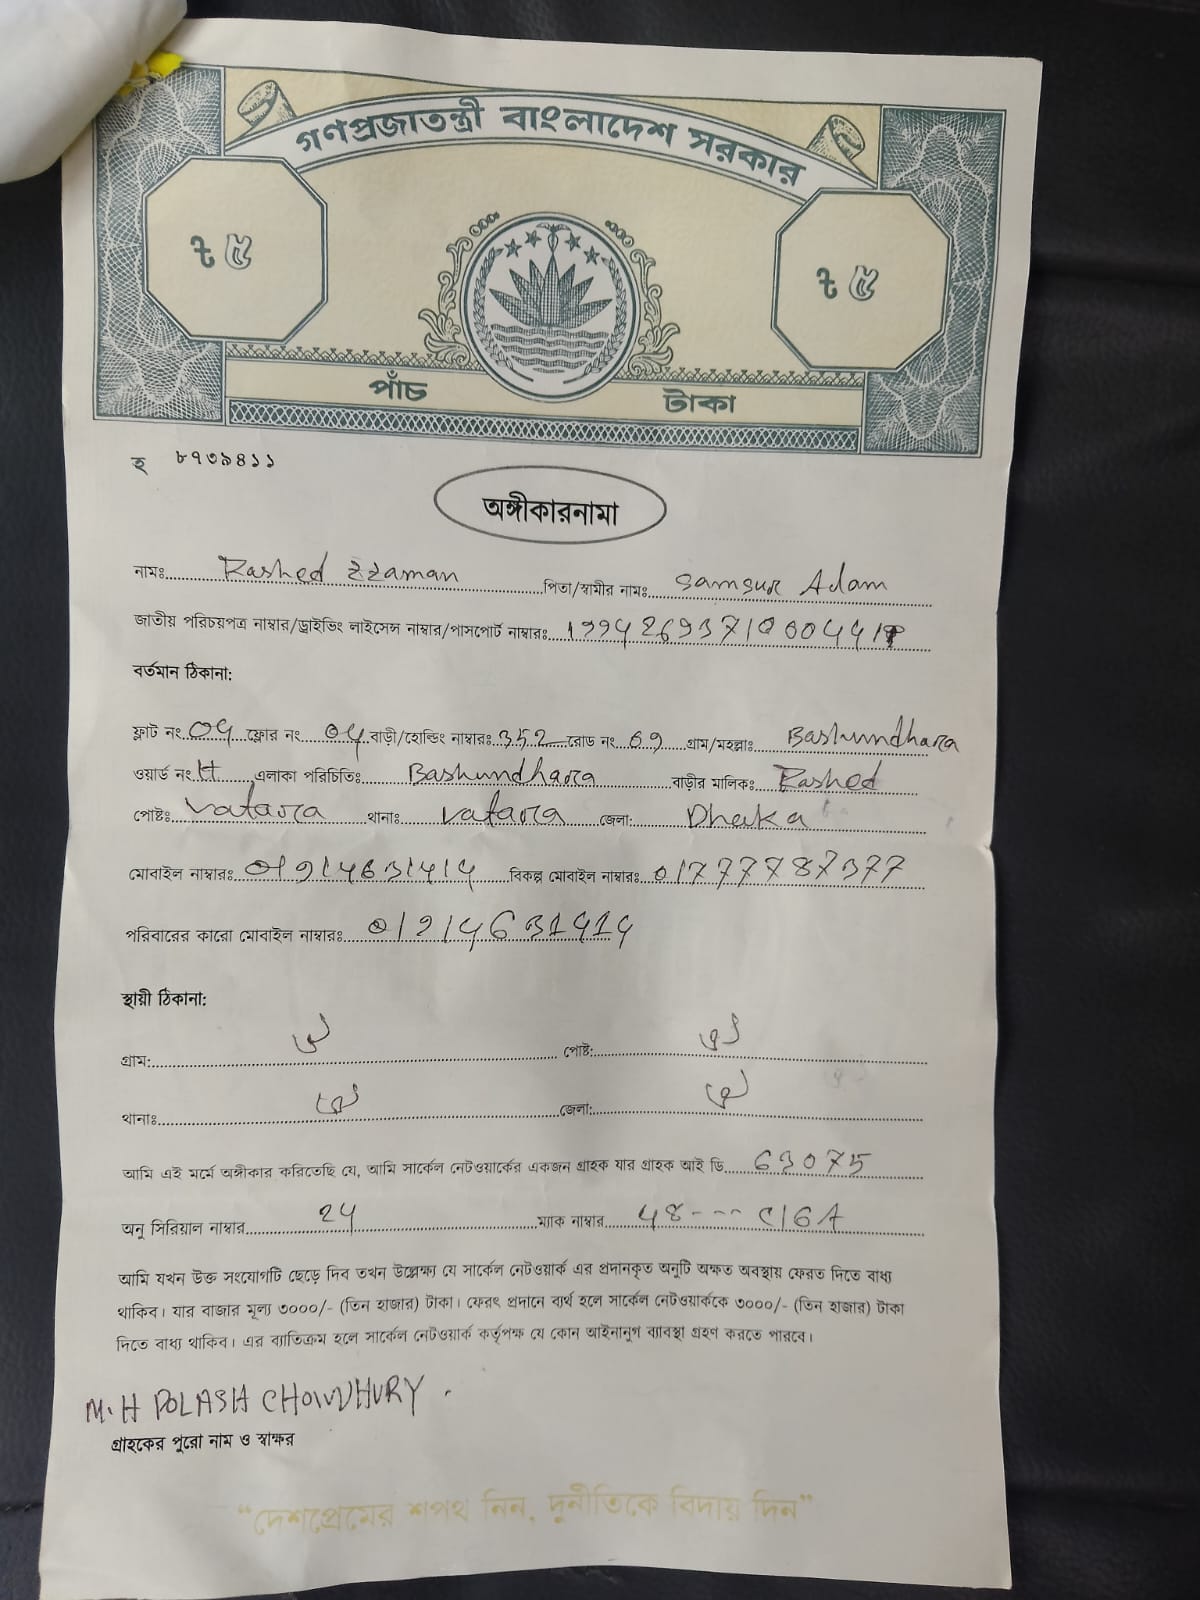 গণপ্রজাতন্ত্রী বাংলাদেশ সরকার
৳ ৫ ৳ ৫
পাঁচ টাকা
হ ৮৭৩৯৪১১
অঙ্গীকারনামা
নামঃ Rashed zzaman পিতা/স্বামীর নামঃ Samsur Adam
জাতীয় পরিচয়পত্র নাম্বার/ড্রাইভিং লাইসেন্স নাম্বার/পাসপোর্ট নাম্বারঃ
বর্তমান ঠিকানা:
ফ্লাট নং ফ্লোর নং বাড়ী/হোল্ডিং নাম্বারঃ 352 রোড নং গ্রাম/মহল্লাঃ Bashundhara
ওয়ার্ড নং H এলাকা পরিচিতিঃ Bashundhara বাড়ীর মালিকঃ Rashed
পোষ্টঃ Vatara থানাঃ Vatara জেলা: Dhaka
মোবাইল নাম্বারঃ বিকল্প মোবাইল নাম্বারঃ 01777787377
পরিবারের কারো মোবাইল নাম্বারঃ
স্থায়ী ঠিকানা:
গ্রাম: পোষ্ট:
থানাঃ জেলা:
আমি এই মর্মে অঙ্গীকার করিতেছি যে, আমি সার্কেল নেটওয়ার্কের একজন গ্রাহক যার গ্রাহক আই ডি 63075
অনু সিরিয়াল নাম্বার 24 ম্যাক নাম্বার 48--- C16A
আমি যখন উক্ত সংযোগটি ছেড়ে দিব তখন উল্লেক্ষ্য যে সার্কেল নেটওয়ার্ক এর প্রদানকৃত অনুটি অক্ষত অবস্থায় ফেরত দিতে বাধ্য
থাকিব। যার বাজার মূল্য ৩০০০/- (তিন হাজার) টাকা। ফেরৎ প্রদানে ব্যর্থ হলে সার্কেল নেটওয়ার্ককে ৩০০০/- (তিন হাজার) টাকা
দিতে বাধ্য থাকিব। এর ব্যাতিক্রম হলে সার্কেল নেটওয়ার্ক কর্তৃপক্ষ যে কোন আইনানুগ ব্যাবস্থা গ্রহণ করতে পারবে।
M.H POLASH CHOWDHURY.
গ্রাহকের পুরো নাম ও স্বাক্ষর
“দেশপ্রেমের শপথ নিন, দুর্নীতিকে বিদায় দিন”